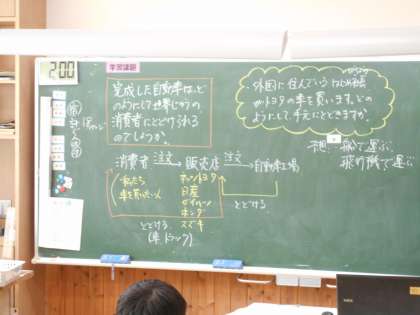 学習課題
2:00
完成した自動車は、ど
のようにして世界じゅうの
消費者にとどけられる
のでしょうか。
・外国に住んでいる
がトヨタの車を買います。どの
ようにして手元にとどきますか。
予想 船で運ぶ
飛行機で運ぶ
消費者 注文→ 販売店 注文→ 自動車工場
私たち
車を買いたい人
トヨタ
日産
ダイハツ
ホンダ
スズキ
とどける
とどける
(車 トラック)